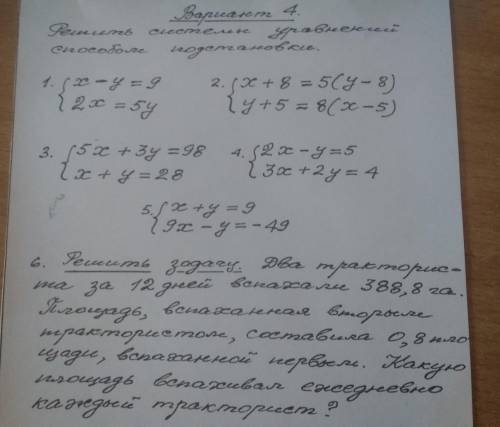 Вариант 4.
Решить системы уравнений
способом подстановки.
1. { x - y = 9
2x = 5y
2. { x + 8 = 5(y - 8)
y + 5 = 8(x - 5)
3. { 5x + 3y = 98
x + y = 28
4. { 2x - y = 5
3x + 2y = 4
5. { x + y = 9
9x - y = -49
6. Решить задачу. Два трактарис-
та за 12 дней вспахали 388,8 га.
Площадь, вспаханная вторым
трактористом, составила 0,8 пло
щади, вспаханной первым. Какую
площадь вспахивал ежедневно
каждый тракторист?